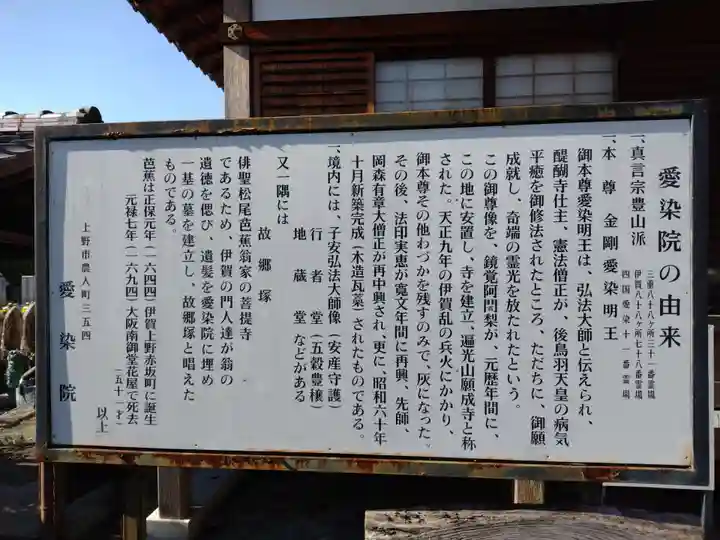 愛染院の由来
三重八十八ヶ所三十一番霊場
伊賀八十八ヶ所七十八番霊場
四国愛染十一番霊場
一、真言宗豊山派
一、本尊 金剛愛染明王
御本尊愛染明王は、弘法大師と伝えられ、
醍醐寺仕主、憲法僧正が、後鳥羽天皇の病気
平癒を御修法されたところ、ただちに、御願
成就し、奇端の霊光を放たれたという。
この御尊像を、鏡覚阿闍梨が、元歴年間に、
この地に安置し、寺を建立、遍光山願成寺と称
された。天正九年の伊賀乱の兵火にかかり、
御本尊その他わづかを残すのみで、灰になった。
その後、法印実恵が寛文年間に再興、先師、
岡森有章大僧正が再中興され、更に、昭和六十年
十月新築完成(木造瓦葺)されたものである。
一、境内には、子安弘法大師像(安産守護)
行者堂(五穀豊穣)
地蔵堂などがある
又一隅には
故郷塚
俳聖松尾芭蕉翁家の菩提寺
であるため、伊賀の門人達が翁の
遺徳を偲び、遺髪を愛染院に埋め
一基の墓を建立し、故郷塚と唱えた
ものである。
芭蕉は正保元年(一六四四)伊賀上野赤坂町に誕生
元禄七年(一六九四)大阪南御堂花屋で死去
(五十一才)
以上
上野市農人町三五四
愛染院